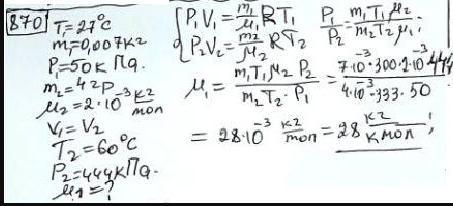 870 T₁=27°C
m₁=0,007кг
P₁=50кПа.
m₂=4гр
μ₂=2·10⁻³ кг/моль
V₁=V₂
T₂=60°C
P₂=444кПа.
μ₁=?
{P₁V₁=m₁/μ₁ RT₁ P₁/P₂=m₁T₁μ₂/m₂T₂μ₁;
P₂V₂=m₂/μ₂ RT₂
μ₁=m₁T₁μ₂P₂/m₂T₂·P₁=7·10⁻³·300·2·10⁻³·444/4·10⁻³·333·50
=28·10⁻³ кг/моль=28 кг/кмоль;